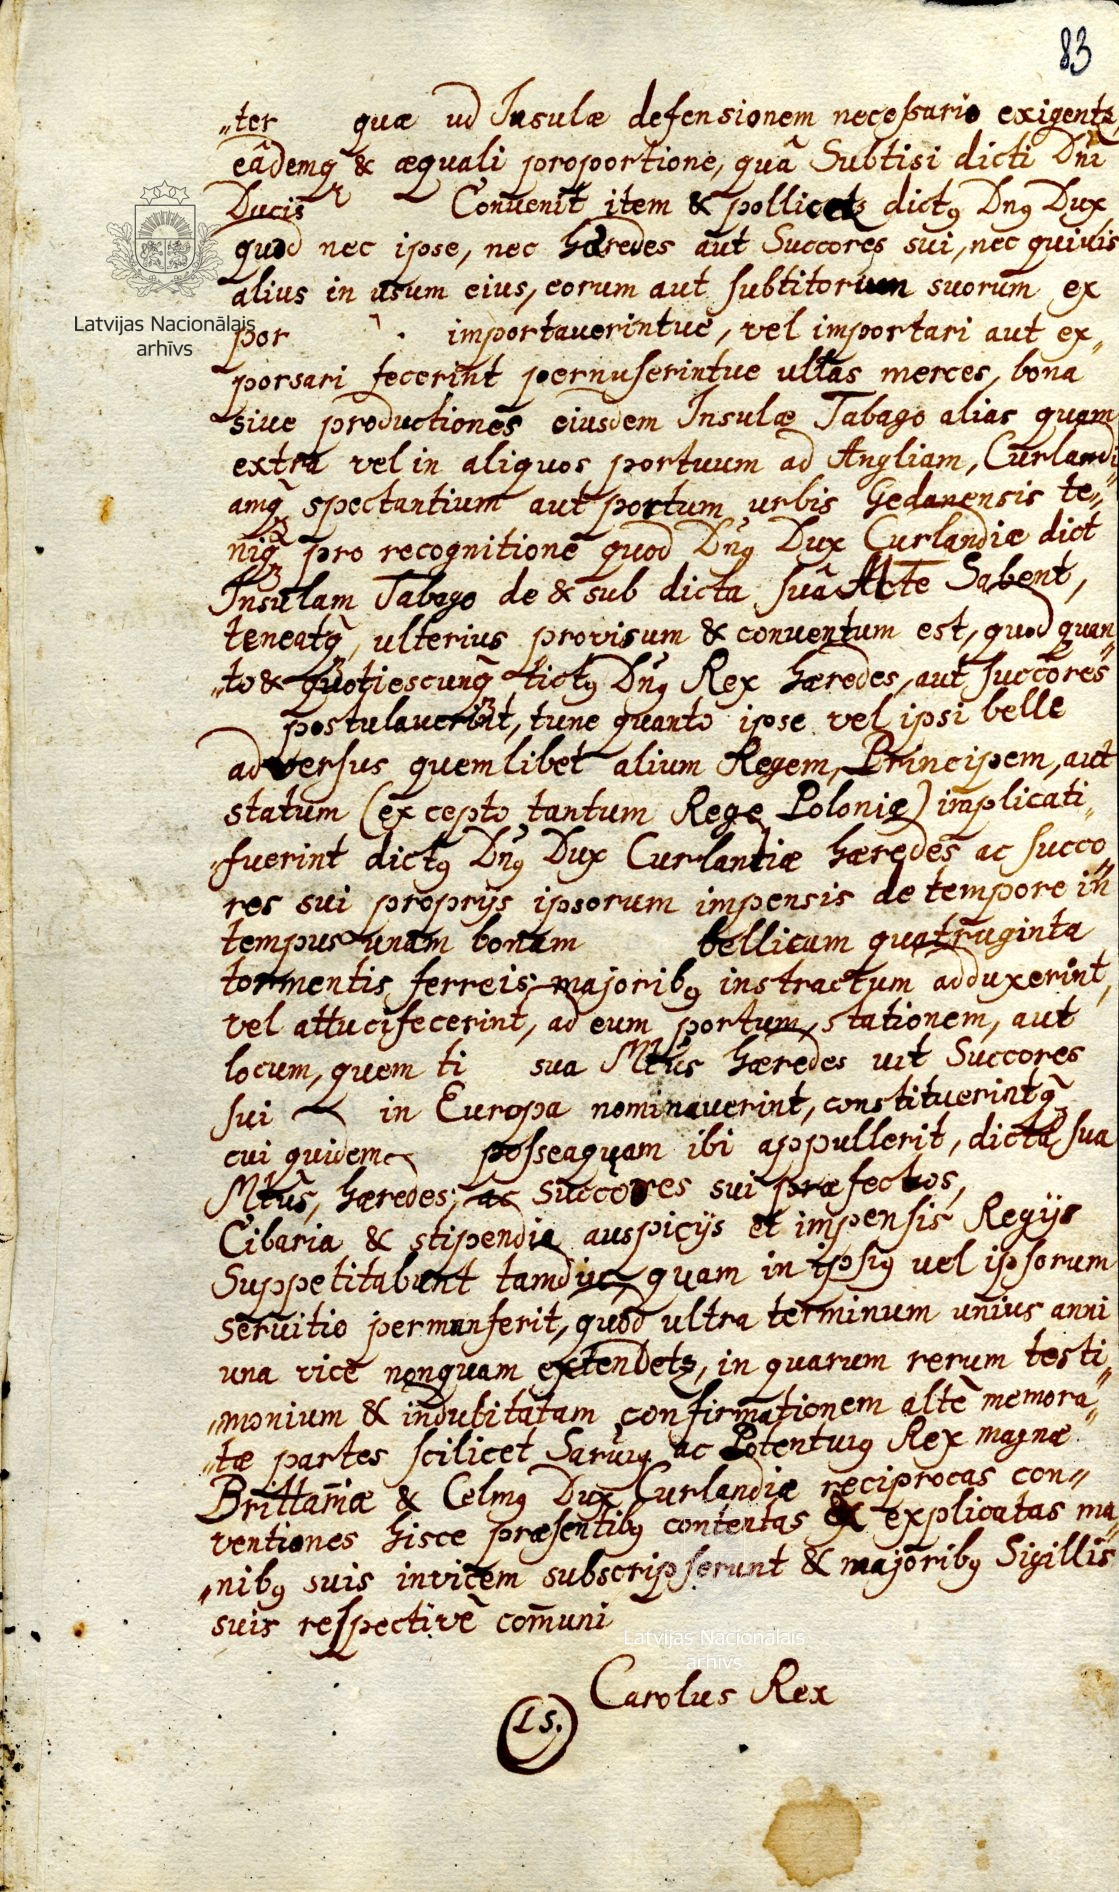 83
„ter quæ ud Insulæ defensionem necessario exigentz
eâdemq̃ & æquali proportione, quâ Subtisi dicti Dñi
Ducis Convenit item & pollicetz dictꝯ Dnꝯ Dux
quod nec ipse, nec hæredes aut Succores sui, nec quivis
alius in usum eius, eorum aut subtitorum suorum ex
por importaverintve, vel importari aut ex„
porsari fecerint pernuserintve ullas merces, bona
sive productiones eiusdem Insulæ Tabago alias quam
extra vel in aliquos portuum ad Angliam, Curlandi„
amq̃ spectantium aut portum urbis Gedanensis te„
niq̃ pro recognitione quod Dnꝯ Dux Curlandiæ dict
Insulam Tabago de & sub dicta suâ Mte Sabent,
teneatq̃, ulterius provisum & conventum est, quod quan„
„to & quotiescunq̃ tictꝯ Dn̄ꝯ Rex hæredes, aut succores
postulaverint, tune quanto ipse vel ipsi belle
adversus quemlibet alium Regem, Principem, aut
statum (excepto tantum Rege Poloniæ) implicati„
„fuerint dictꝯ Dn̄ꝯ Dux Curlantiæ hæredes ac succo„
res sui proprijs ipsorum impensis de tempore in
tempus unam bonam bellicum quatruginta
tormentis ferreis majoribꝯ instractum adduxerint,
vel attucifecerint, ad eum portum, stationem, aut
locum, quem ti sua Mtus hæredes uit Succores
sui in Europa nominaverint, constituerintq̃
cui quidem posseaquam ibi appullerit, dicta sua
Mtus, hæredes, ac Succores sui præfectos,
Cibaria & stipendia auspicijs et impensis Regijs
Suppetitabunt tamdiu, quam in ipsiꝯ vel ipsorum
servitio permanferit, quod ultra terminum unius anni
una vice nonquam extendetz, in quarum rerum testi„
„monium & indubitatam confirmationem altè memora„
„tæ partes scilicet Saruiꝯ ac Potentuiꝯ Rex magnæ
Brittañiæ & Celmꝯ Dux Curlandiæ reciprocas con„
ventiones hisce præsentibꝯ contentas & explicatas ma„
„nibꝯ suis invicem subscripserunt & majoribꝯ Sigillis
suis respectivè com̄uni
Carolus Rex
LS.
Latvijas Nacionālais
arhīvs
Latvijas Nacionālais
arhīvs